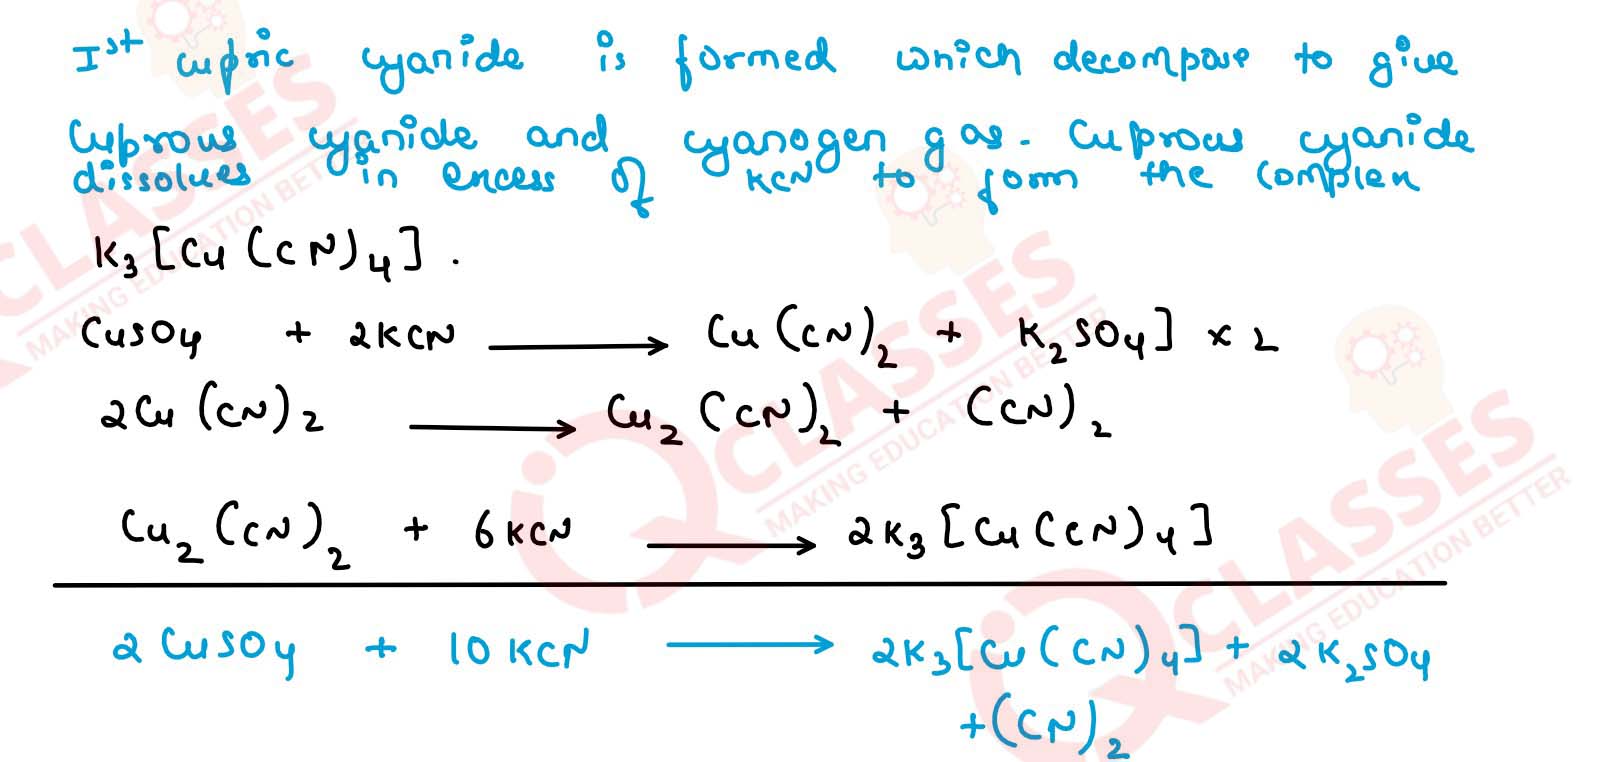 Ist cupric cyanide is formed which decompose to give
Cuprous cyanide and cyanogen gas. Cuprous cyanide
dissolves in excess of KCN to form the complex
K₃[Cu(CN)₄].
CuSO₄ + 2KCN ⟶ Cu(CN)₂ + K₂SO₄] × 2
2Cu(CN)₂ ⟶ Cu₂(CN)₂ + (CN)₂
Cu₂(CN)₂ + 6KCN ⟶ 2K₃[Cu(CN)₄]
2CuSO₄ + 10KCN ⟶ 2K₃[Cu(CN)₄] + 2K₂SO₄
+(CN)₂
CLASSES
MAKING EDUCATION BETTER
CLASSES
MAKING EDUCATION BETTER
CLASSES
MAKING EDUCATION BETTER